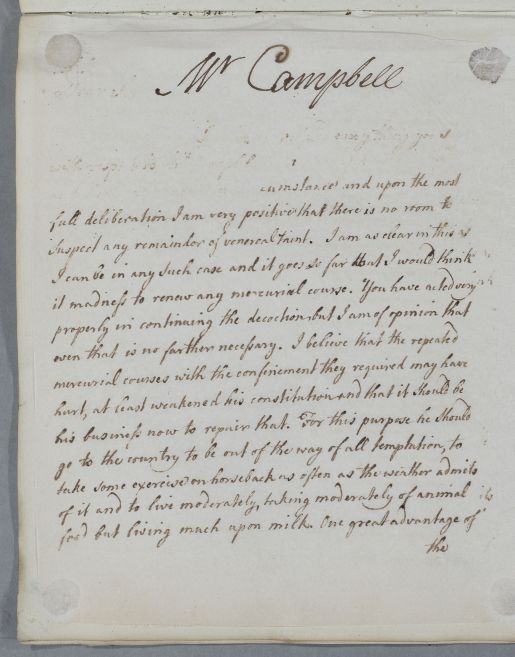 Mr Campbell
cumstance and upon the most
full deliberation I am very positive that there is no room to
suspect any remainder of venereal taint. I am as clear in this as
I can be in any such case and it goes so far that I would think
it madness to renew any mercurial course. You have acted very
properly in continuing the decoction but I am of opinion that
even that is no farther necessary. I believe that the repeated
mercurial courses with the confinement they required may have
hurt, at least weakened his constitution and that it should be
his business now to repair that. For this purpose he should
go to the country to be out of the way of all temptation, to
take some exercise on horseback as often as the weather admits
of it and to live moderately, taking moderately of animal
food but living much upon milk. One great advantage of
the